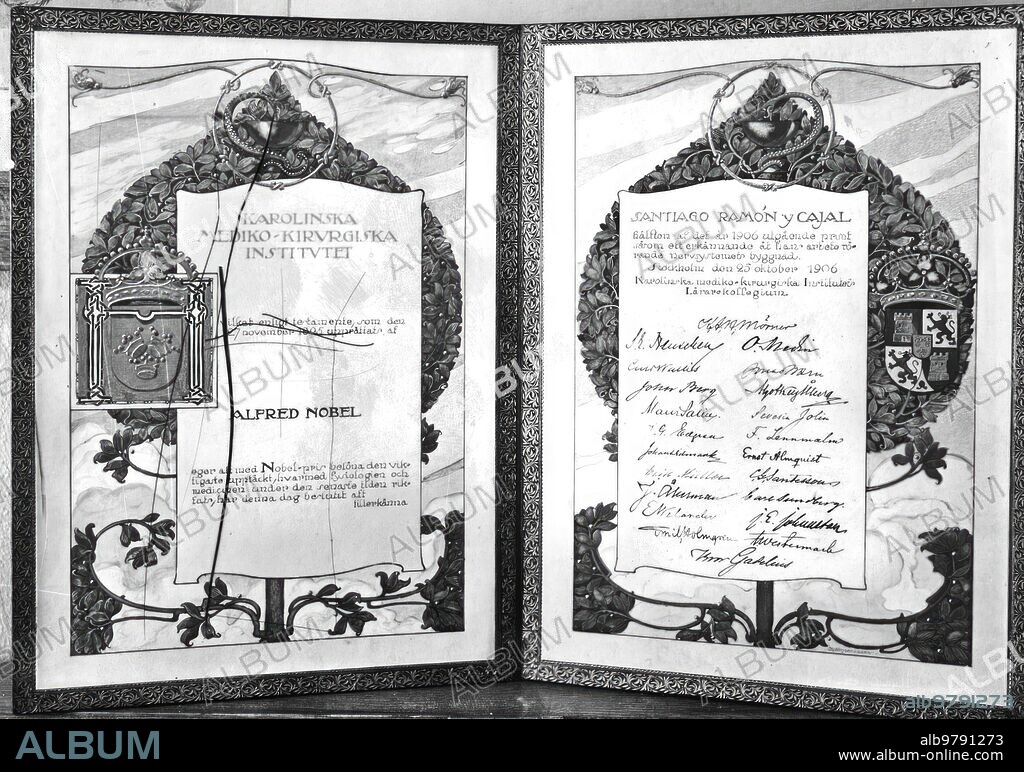 KAROLINSKA
MEDIKO-KIRURGISKA
INSTITUTET
enligt testamente, som den
27 november 1895 upprättats af
ALFRED NOBEL
eger att med Nobel-pris belöna den vik-
tigaste upptäckt, hvarmed fysiologien och
medicinen under den senaste tiden rik-
tats, har denna dag beslutit att
tillerkänna
SANTIAGO RAMÓN y CAJAL
hälften af det år 1906 utgående priset
såsom ett erkännande åt hans arbete rö-
rande nervsystemets byggnad.
Stockholm den 25 oktober 1906
Karolinska mediko-kirurgiska Institutets
Lärarekollegium.
Mörner
O. Medin
Curt Wallis
John Berg
Severin Jolin
J. G. Edgren F. Lennmalm
Ernst Almquist
Erik Müller C G Santesson
J. Åkerman Carl Sundberg
E Welander J. E. Johansson
Emil Holmgren Westermark
Gadelius
ALBUM
alb9791273
alb9791273
www.album-online.com